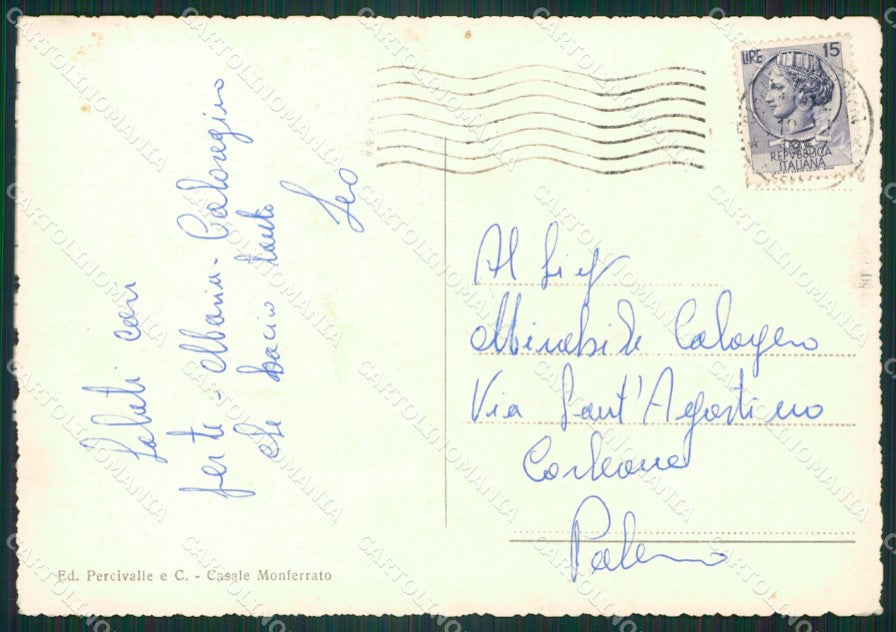 Saluti cari
per te - Maria - Caloregino
che bacio tanto
Leo
LIRE 15
REPVBBLICA
ITALIANA
Al Sig
Mirabile Calogero
Via Sant'Agostino
Corleone
Palermo
Ed. Percivalle e C. - Casale Monferrato
CARTOLINOMANIA